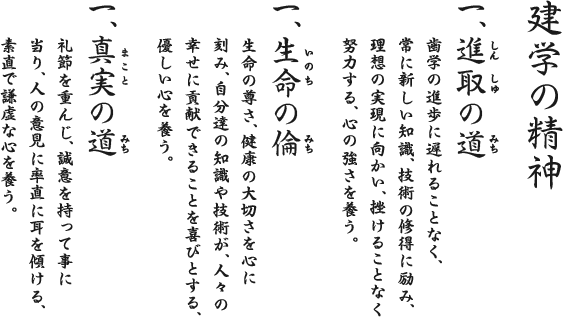 建学の精神
一、進取の道
しんしゅ みち
歯学の進歩に遅れることなく、
常に新しい知識、技術の修得に励み、
理想の実現に向かい、挫けることなく
努力する、心の強さを養う。
一、生命の倫
いのち みち
生命の尊さ、健康の大切さを心に
刻み、自分達の知識や技術が、人々の
幸せに貢献できることを喜びとする、
優しい心を養う。
一、真実の道
まこと みち
礼節を重んじ、誠意を持って事に
当り、人の意見に率直に耳を傾ける、
素直で謙虚な心を養う。